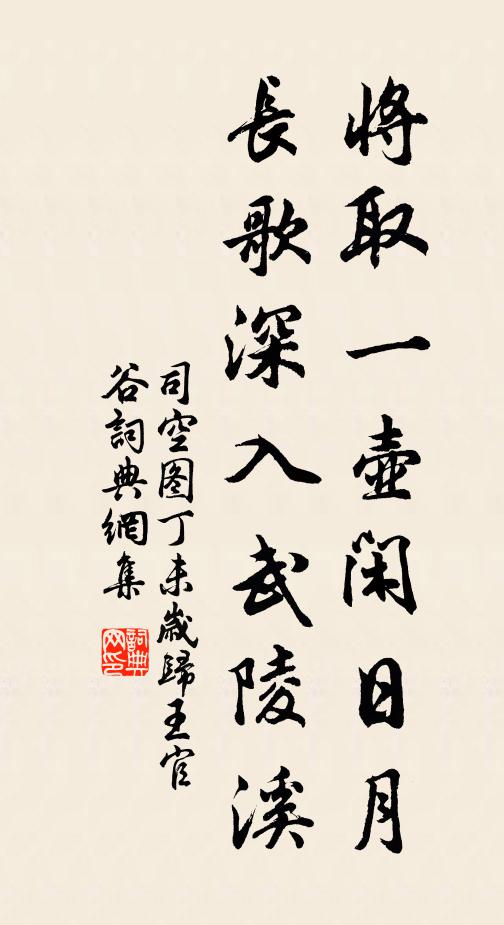 將取一壺閑日月
長歌深入武陵溪
司空图丁未歲歸王官
谷詞典網集
詞典
网印